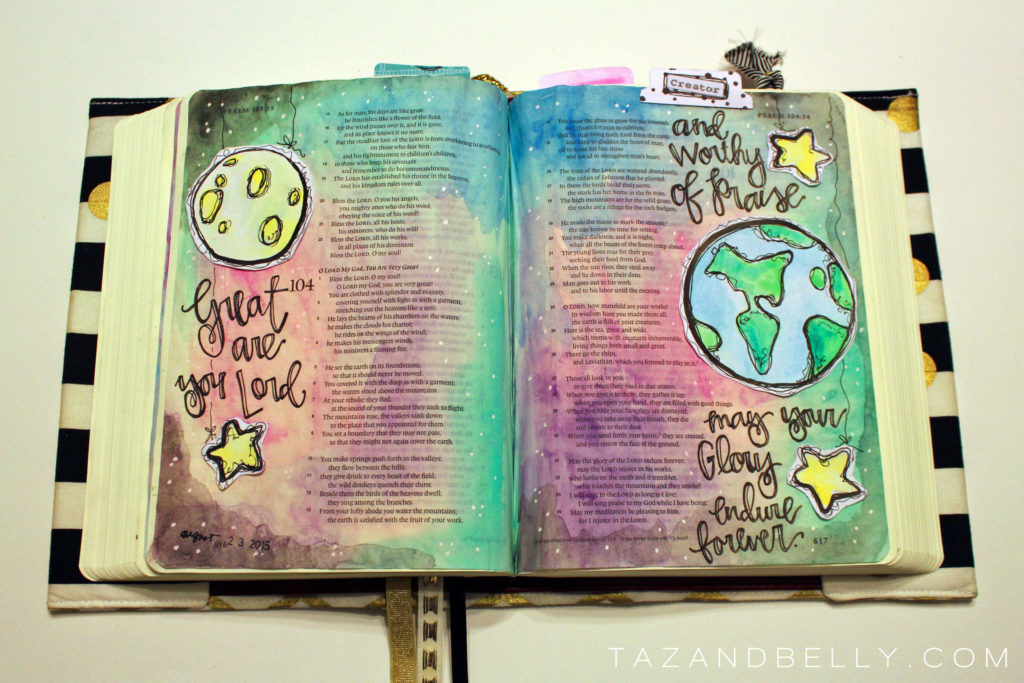 PSALM 103:15
15 As for man, his days are like grass;
he flourishes like a flower of the field;
16 for the wind passes over it, and it is gone,
and its place knows it no more.
17 But the steadfast love of the LORD is from everlasting to everlasting
on those who fear him,
and his righteousness to children's children,
18 to those who keep his covenant
and remember to do his commandments.
19 The LORD has established his throne in the heavens,
and his kingdom rules over all.
20 Bless the LORD, O you his angels,
you mighty ones who do his word,
obeying the voice of his word!
21 Bless the LORD, all his hosts,
his ministers, who do his will!
22 Bless the LORD, all his works,
in all places of his dominion.
Bless the LORD, O my soul!
O LORD My God, You Are Very Great
104
1 Bless the LORD, O my soul!
O LORD my God, you are very great!
You are clothed with splendor and majesty,
2 covering yourself with light as with a garment,
stretching out the heavens like a tent.
3 He lays the beams of his chambers on the waters;
he makes the clouds his chariot;
he rides on the wings of the wind;
4 he makes his messengers winds,
his ministers a flaming fire.
5 He set the earth on its foundations,
so that it should never be moved.
6 You covered it with the deep as with a garment;
the waters stood above the mountains.
7 At your rebuke they fled;
at the sound of your thunder they took to flight.
8 The mountains rose, the valleys sank down
to the place that you appointed for them.
9 You set a boundary that they may not pass,
so that they might not again cover the earth.
10 You make springs gush forth in the valleys;
they flow between the hills;
11 they give drink to every beast of the field;
the wild donkeys quench their thirst.
12 Beside them the birds of the heavens dwell;
they sing among the branches.
13 From your lofty abode you water the mountains;
the earth is satisfied with the fruit of your work.
Great
are
you Lord
august 23 2015
616
Creator
PSALM 104:14
14 You cause the grass to grow for the livestock
and plants for man to cultivate,
that he may bring forth food from the earth
15 and wine to gladden the heart of man,
oil to make his face shine
and bread to strengthen man's heart.
16 The trees of the LORD are watered abundantly,
the cedars of Lebanon that he planted.
17 In them the birds build their nests;
the stork has her home in the fir trees.
18 The high mountains are for the wild goats;
the rocks are a refuge for the rock badgers.
19 He made the moon to mark the seasons;
the sun knows its time for setting.
20 You make darkness, and it is night,
when all the beasts of the forest creep about.
21 The young lions roar for their prey,
seeking their food from God.
22 When the sun rises, they steal away
and lie down in their dens.
23 Man goes out to his work
and to his labor until the evening.
24 O LORD, how manifold are your works!
In wisdom have you made them all;
the earth is full of your creatures.
25 Here is the sea, great and wide,
which teems with creatures innumerable,
living things both small and great.
26 There go the ships,
and Leviathan, which you formed to play in it.
27 These all look to you,
to give them their food in due season.
28 When you give it to them, they gather it up;
when you open your hand, they are filled with good things.
29 When you hide your face, they are dismayed;
when you take away their breath, they die
and return to their dust.
30 When you send forth your Spirit, they are created,
and you renew the face of the ground.
31 May the glory of the LORD endure forever;
may the LORD rejoice in his works,
32 who looks on the earth and it trembles,
who touches the mountains and they smoke!
33 I will sing to the LORD as long as I live;
I will sing praise to my God while I have being.
34 May my meditation be pleasing to him,
for I rejoice in the LORD.
617
and
Worthy
of Praise
may your
Glory
endure
forever.
TAZANDBELLY.COM